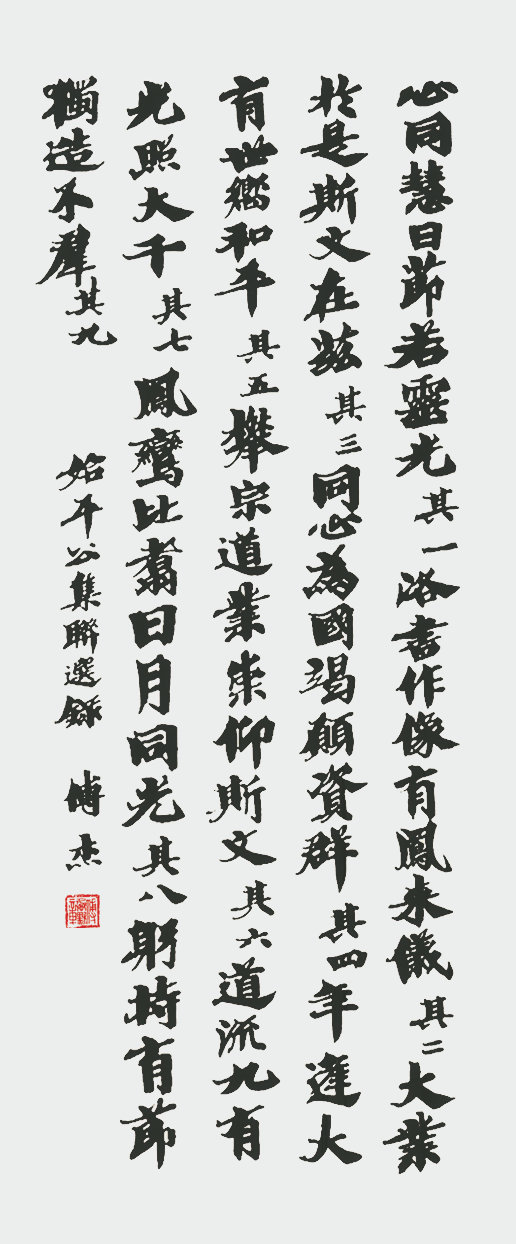 心同慧日節若靈光其一洛書作像有鳳来儀其二大業
於是斯文在茲其三同心為國竭顧資群其四年逢大
有世鄉和平其五攀宗道業崇仰斯文其六道流九有
光照大千其七鳳鸞比翥日月同光其八躬持有節
獨造不群其九
始平公集聯選錄 傅杰